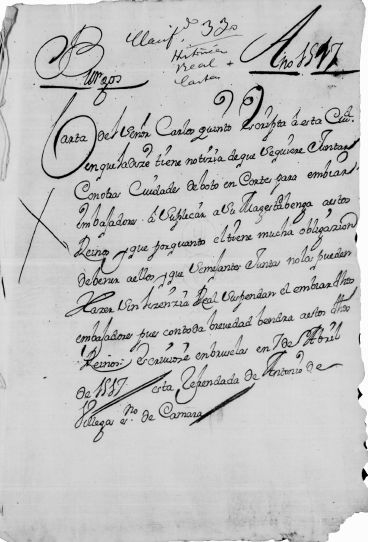 Clasif. 330
Histórica
Real +
Cartas
Burgos
Año 1517
Carta del Señor Carlos quinto escripta á esta Ciud.
en que la dize tiene notizia de que se quiere Juntar
Con otras Ciudades de boto en Cortes para embiar
embaxadores á Suplicar á Su Magestad benga a estos
Reinos y que porquanto el tiene mucha obligazion
de benir a ellos y que Semejantes Juntas no las pueden
Hazer Sin lizenzia Real Suspendan el embiar dhos
embaxadores pues con toda brevedad bendra a estos dhos
Reinos: es Su fecha en bruselas en 7 de Abril
de 1517 esta Refrendada de Antonio de
Villegas es.no de Camara